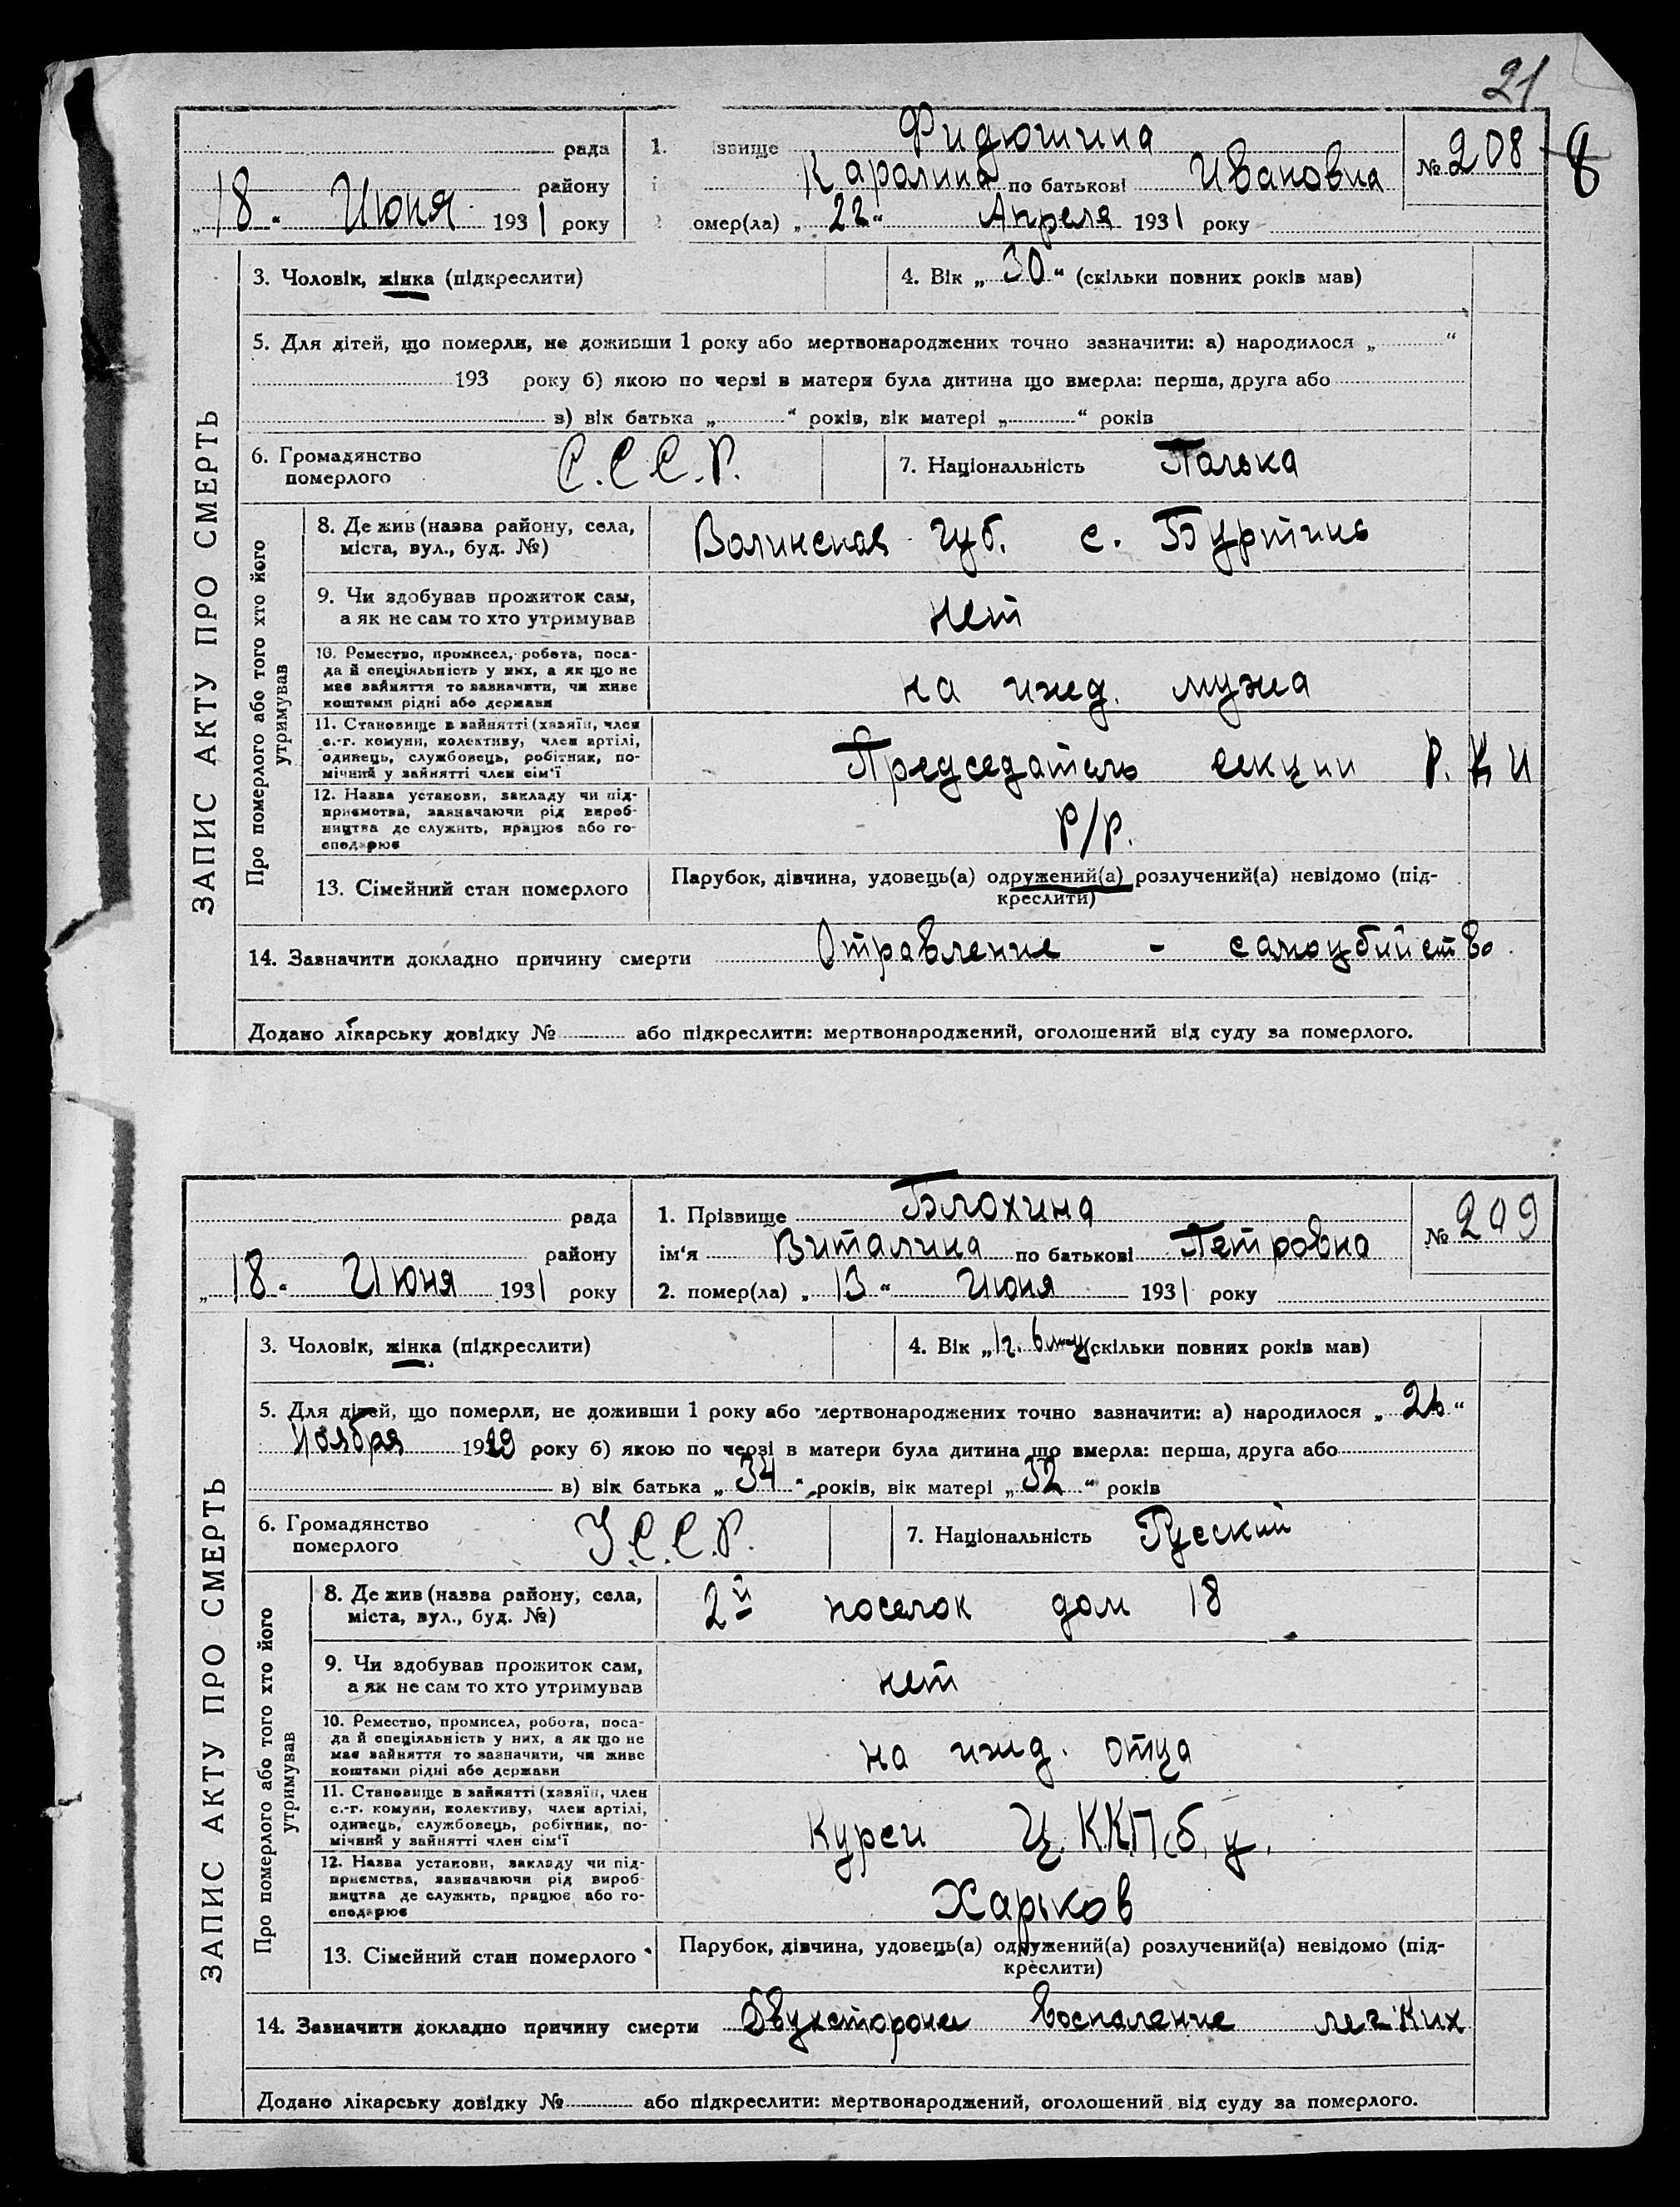 21
рада
району
„ 18 “ Июня 1931 року
1. ізвище Фидюшина
Каралина по батькові Ивановна
омер(ла) „ 22 “ Апреля 1931 року
№ 208
8
ЗАПИС АКТУ ПРО СМЕРТЬ
3. Чоловік, жінка (підкреслити)
4. Вік „ 30 “ (скільки повних років мав)
5. Для дітей, що померли, не доживши 1 року або мертвонароджених точно зазначити: а) народилося „ “
193 року б) якою по черзі в матери була дитина що вмерла: перша, друга або
в) вік батька „ “ років, вік матері „ “ років
6. Громадянство
померлого
С.С.С.Р.
7. Національність Палька
Про померлого або того хто його
утримував
8. Де жив (назва району, села,
міста, вул., буд. №)
Валинская губ. с. Буртинь
9. Чи здобував прожиток сам,
а як не сам то хто утримував
нет
10. Ремество, промисел, робота, поса-
да й спеціяльність у них, а як що не
має зайняття то зазначити, чи живе
коштами рідні або держави
на ижд. мужа
11. Становище в зайнятті (хазяїн, член
с.-г. комуни, колективу, член артілі,
одинець, службовець, робітник, по-
мічний у зайнятті член сім'ї
Председатель секции Р.К И
12. Назва установи, закладу чи під-
приємства, зазначаючи рід вироб-
ництва де служить, працює або го-
сподарює
Р/Р.
13. Сімейний стан померлого
Парубок, дівчина, удовець(а) одружений(а) розлучений(а) невідомо (під-
креслити)
14. Зазначити докладно причину смерти Отравление - самоубийство.
Додано лікарську довідку № або підкреслити: мертвонароджений, оголошений від суду за померлого.
рада
району
„ 18 “ Июня 1931 року
1. Прізвище Блохина
ім'я Виталина по батькові Петровна
2. помер(ла) „ 13 “ Июня 1931 року
№ 209
ЗАПИС АКТУ ПРО СМЕРТЬ
3. Чоловік, жінка (підкреслити)
4. Вік „ 1г. 6 (скільки повних років мав)
5. Для дітей, що померли, не доживши 1 року або мертвонароджених точно зазначити: а) народилося „ “
Ноября 1929 року б) якою по черзі в матери була дитина що вмерла: перша, друга або
в) вік батька „ 34 “ років, вік матері „ 32 “ років
6. Громадянство
померлого
У.С.С.Р.
7. Національність Руский
Про померлого або того хто його
утримував
8. Де жив (назва району, села,
міста, вул., буд. №)
2й поселок дом 18
9. Чи здобував прожиток сам,
а як не сам то хто утримував
нет
10. Ремество, промисел, робота, поса-
да й спеціяльність у них, а як що не
має зайняття то зазначити, чи живе
коштами рідні або держави
на ижд. отца
11. Становище в зайнятті (хазяїн, член
с.-г. комуни, колективу, член артілі,
одинець, службовець, робітник, по-
мічний у зайнятті член сім'ї
Курси Ц.К.К.П.(б)у.
12. Назва установи, закладу чи під-
приємства, зазначаючи рід вироб-
ництва де служить, працює або го-
сподарює
Харьков
13. Сімейний стан померлого
Парубок, дівчина, удовець(а) одружений(а) розлучений(а) невідомо (під-
креслити)
14. Зазначити докладно причину смерти Двухсторонен воспаление легких
Додано лікарську довідку № або підкреслити: мертвонароджений, оголошений від суду за померлого.